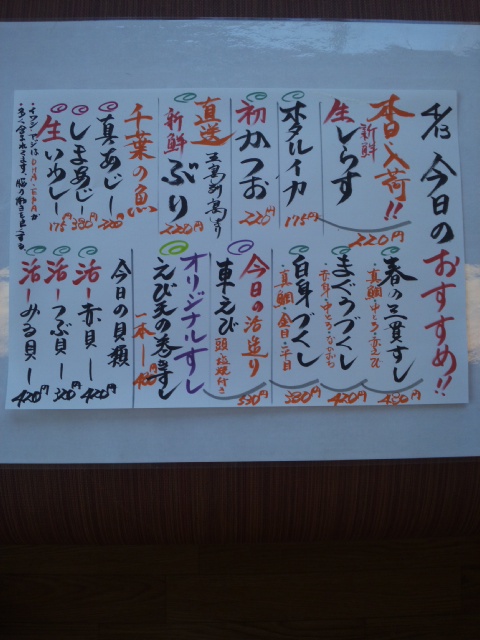 4/13 今日のおすすめ!!
本日入荷!!
新鮮
生しらす
220円
ホタルイカ
175円
初かつお
220円
直送
五島列島より
新鮮ぶり
220円
千葉の魚
真あじー
220
しまあじー
380円
生いわしー
175円
・イワシ・アジはDHA・EPAが
春の三貫すし
・真鯛・中とろ・赤えび
480円
まぐろづくし
・赤身・中とろ
420円
白身づくし
・真鯛・金目・平目
380円
今日の活造り
車えび
頭塩焼付き
530円
オリジナルすし
えび天の巻すし
一本ー
480円
今日の貝類
活ー赤貝ー
420円
活ーつぶ貝ー
320円
活ーみる貝ー
420円